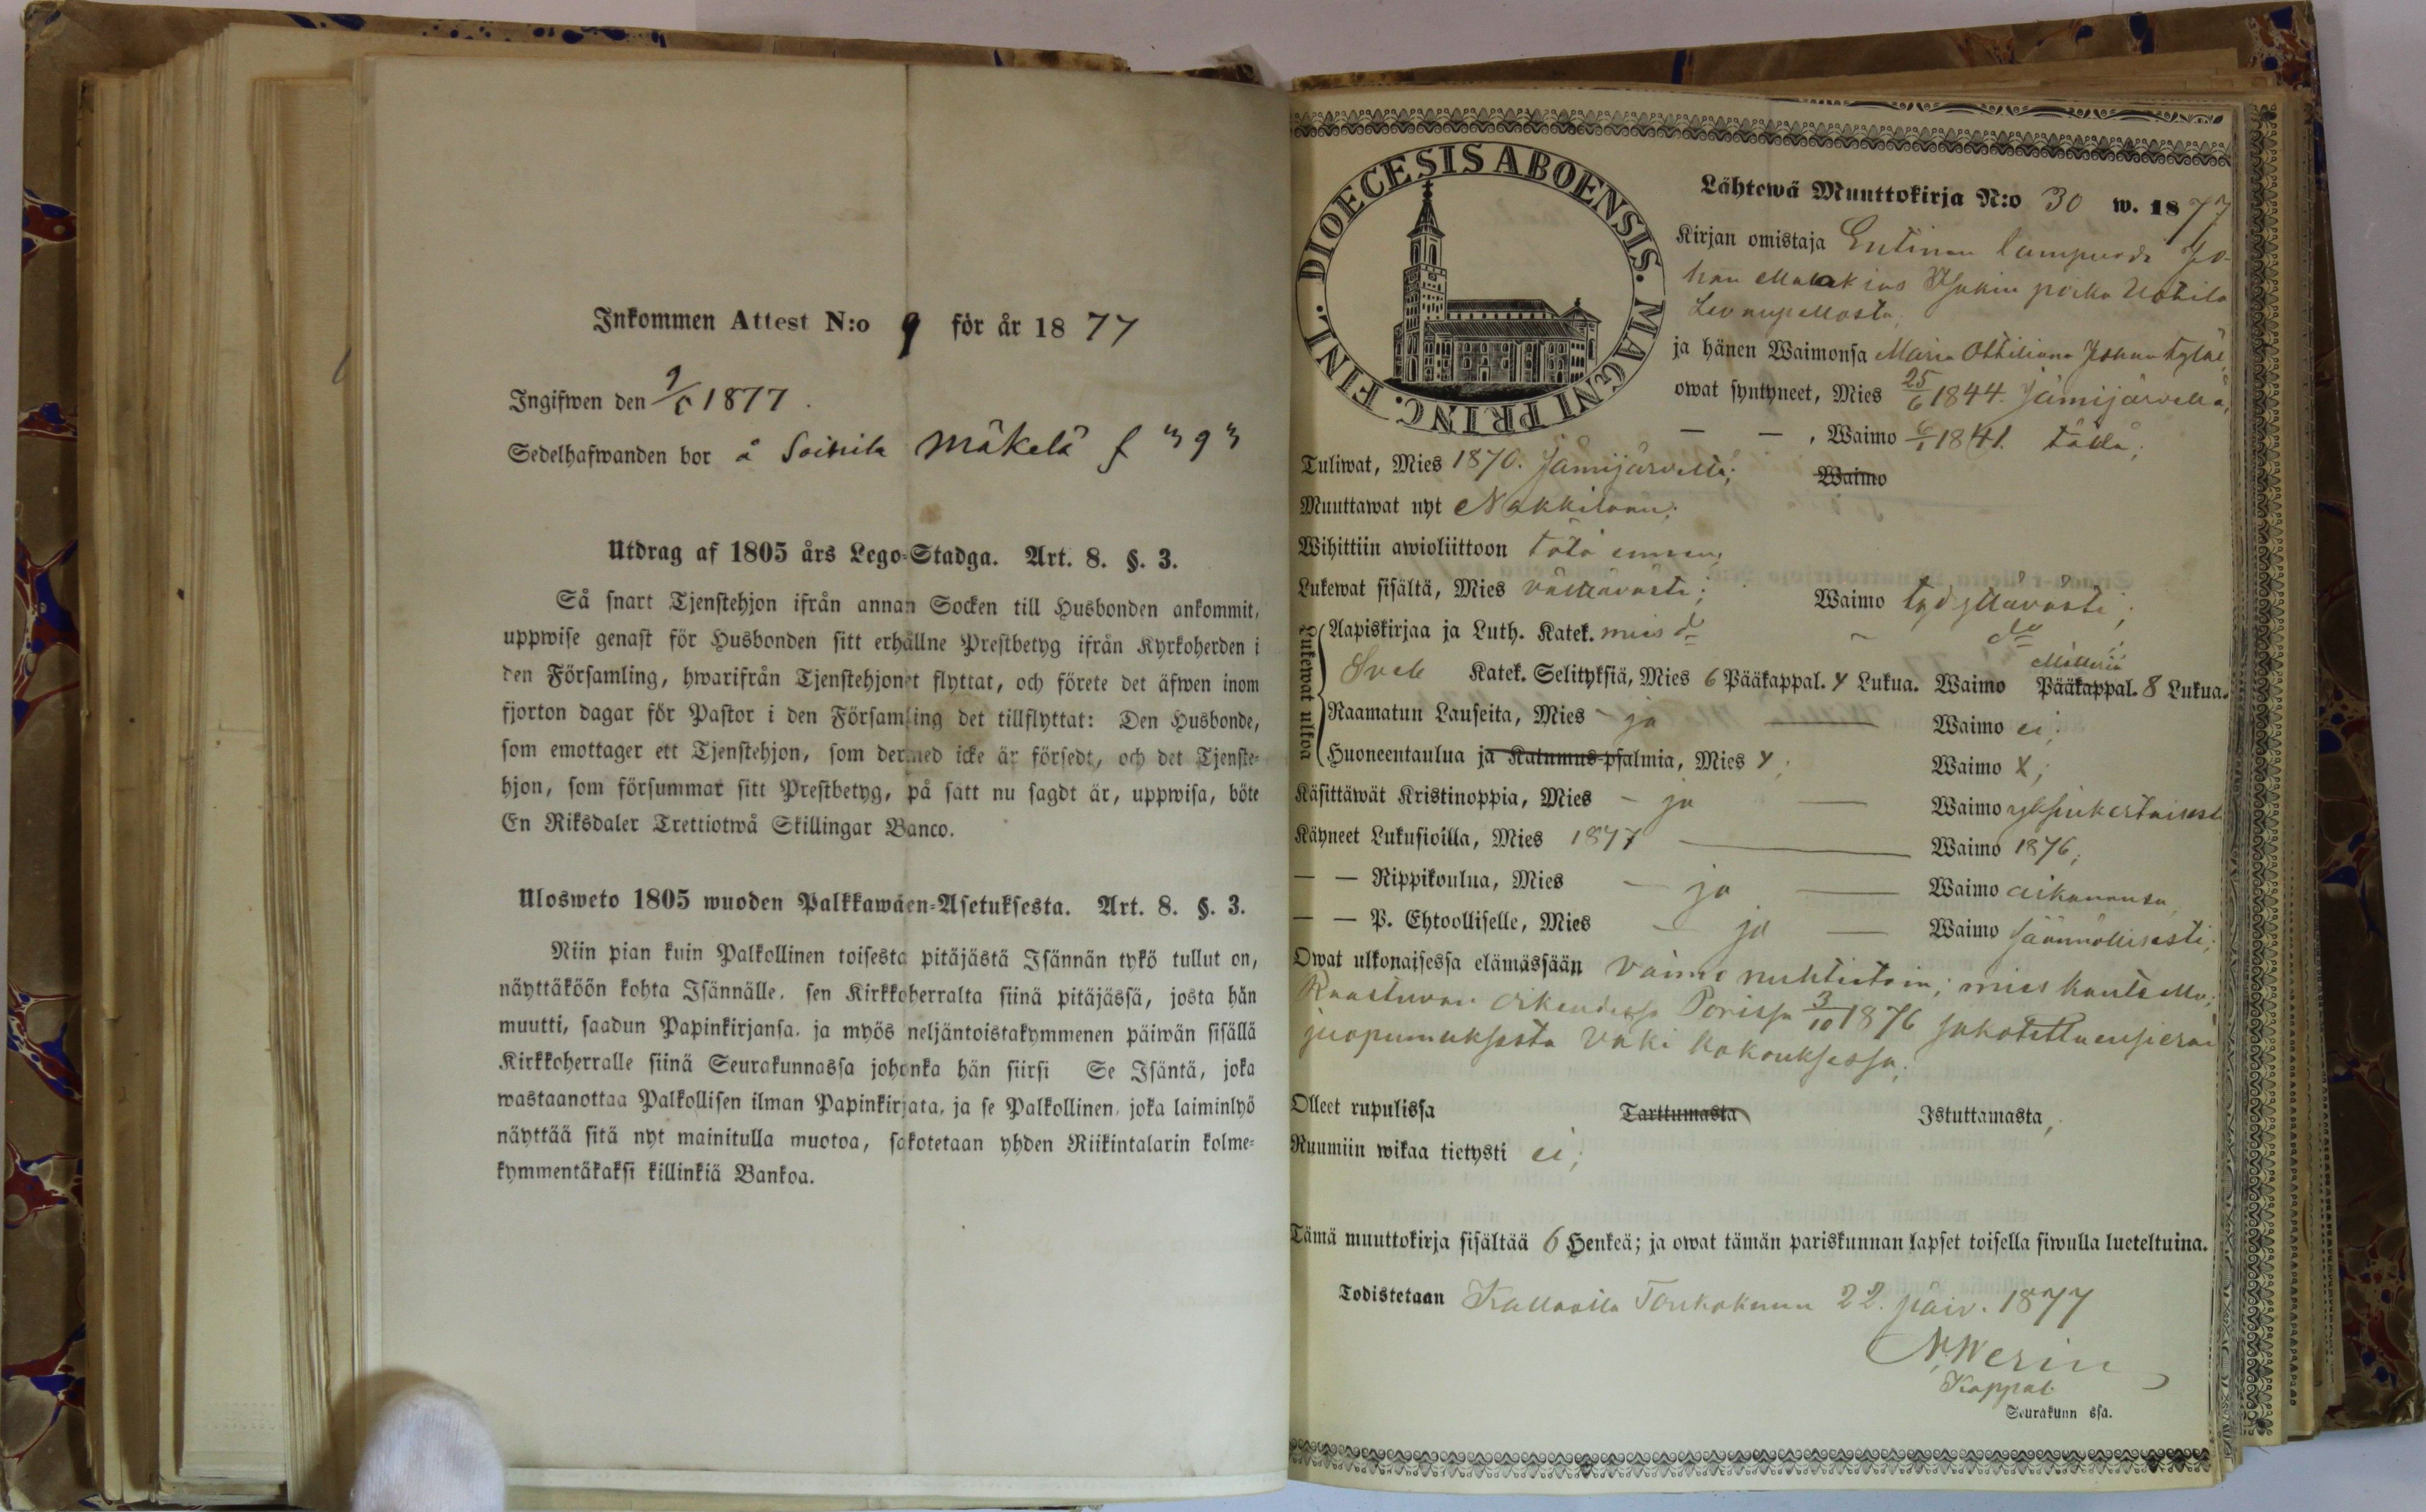 Inkommen Attest N:o 9 för år 1877
Ingifwen den 9/6 1877.
Sedelhafwanden bor å Soinila Mäkelä f " 9 "
Utdrag af 1805 års Lego-Stadga. Art. 8. §. 3.
Så snart Tjenstehjon ifrån annan Socken till Husbonden ankommit,
uppwise genast för Husbonden sitt erhållne Prestbetyg ifrån Kyrkoherden i
den Församling, hwarifrån Tjenstehjonet flyttat, och förete det äfwen inom
fjorton dagar för Pastor i den Församling det tillflyttat: Den Husbonde,
som emottager ett Tjenstehjon, som dermed icke är försedt, och det Tjenste-
hjon, som försummar sitt Prestbetyg, på sätt nu sagdt är, uppwisa, böte
En Riksdaler Trettiotwå Skillingar Banco.
Ulosweto 1805 wuoden Palkkawäen-Asetuksesta. Art. 8. §. 3.
Niin pian kuin Palkollinen toisesta pitäjästä Isännän tykö tullut on,
näyttäköön kohta Isännälle, sen Kirkkoherralta siinä pitäjässä, josta hän
muutti, saadun Papinkirjansa, ja myös neljäntoistakymmenen päiwän sisällä
Kirkkoherralle siinä Seurakunnassa johonka hän siirsi Se Isäntä, joka
wastaanottaa Palkollisen ilman Papinkirjata, ja se Palkollinen, joka laiminlyö
näyttää sitä nyt mainitulla muotoa, sakotetaan yhden Riikintalarin kolme-
kymmentäkaksi killinkiä Bankoa.
DIOECESIS ABOENSIS. MAGNI PRINC. FINL.
Lähtewä Muuttokirja N:o 30 w. 1877
Kirjan omistaja Entinen lampuodi Jo-
han Malakias Isakin poika Uotila
Levanpellosta,
ja hänen Waimonsa Maria Ottiliana Johan tytär,
owat syntyneet, Mies 25/6 1844. Jämijärvellä,
— — , Waimo 6/1 1841. täällä;
Tuliwat, Mies 1870. Jämijärveltä; Waimo
Muuttawat nyt Nakkilaan;
Wihittiin awioliittoon tätä ennen;
Lukewat sisältä, Mies välttävästi; Waimo tydyttävästi;
Lukewat ulkoa
Aapiskirjaa ja Luth. Katek. mies do do
Sveb Katek. Selityksiä, Mies 6 Pääkappal. 4 Lukua. Waimo Pääkappal. 8 Lukua.
Raamatun Lauseita, Mies - ja — Waimo ei;
Huoneentaulua ja Katumus-psalmia, Mies x; Waimo x;
Käsittäwät Kristinoppia, Mies - ja — Waimo yksinkertaisesti
Käyneet Lukusioilla, Mies 1877 — Waimo 1876;
— — Rippikoulua, Mies - ja — Waimo aikanansa,
— — P. Ehtoolliselle, Mies - ja — Waimo säännöllisesti;
Owat ulkonaisessa elämässään vaimo nuhteetoin; mies
Raastuvan oikeudessa Porissa 3/10 1876 sakotettu
juopumuksesta väki kokouksessa;
Olleet rupulissa Tarttumasta Istuttamasta,
Ruumiin wikaa tietysti ei;
Tämä muuttokirja sisältää 6 Henkeä; ja owat tämän pariskunnan lapset toisella siwulla lueteltuina.
Todistetaan Kullaalla Toukokuun 22. päiv. 1877
Kappal.
Seurakunn ssa.